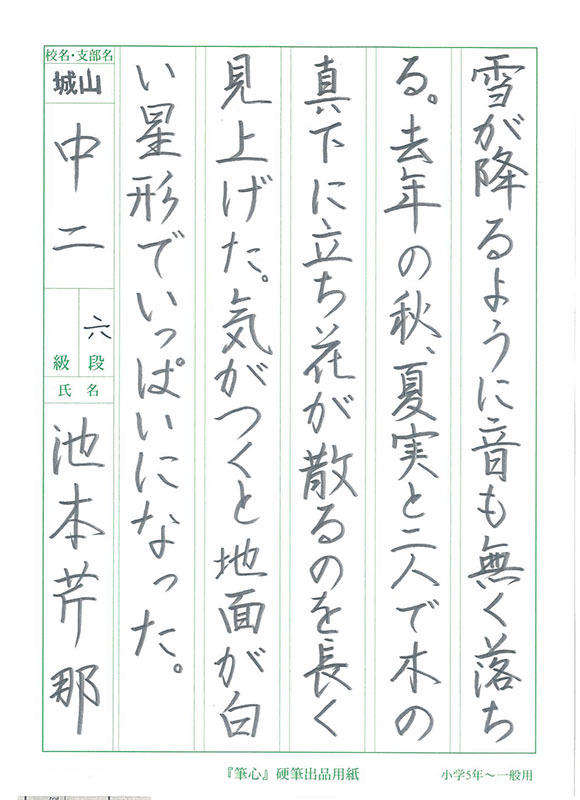 雪が降るように音も無く落ち
る。去年の秋、夏実と二人で木の
真下に立ち花が散るのを長く
見上げた。気がつくと地面が白
い星形でいっぱいになった。
校名・支部名
城山
中二
六
級 段
氏名
池本芹那
『筆心』硬筆出品用紙
小学5年〜一般用